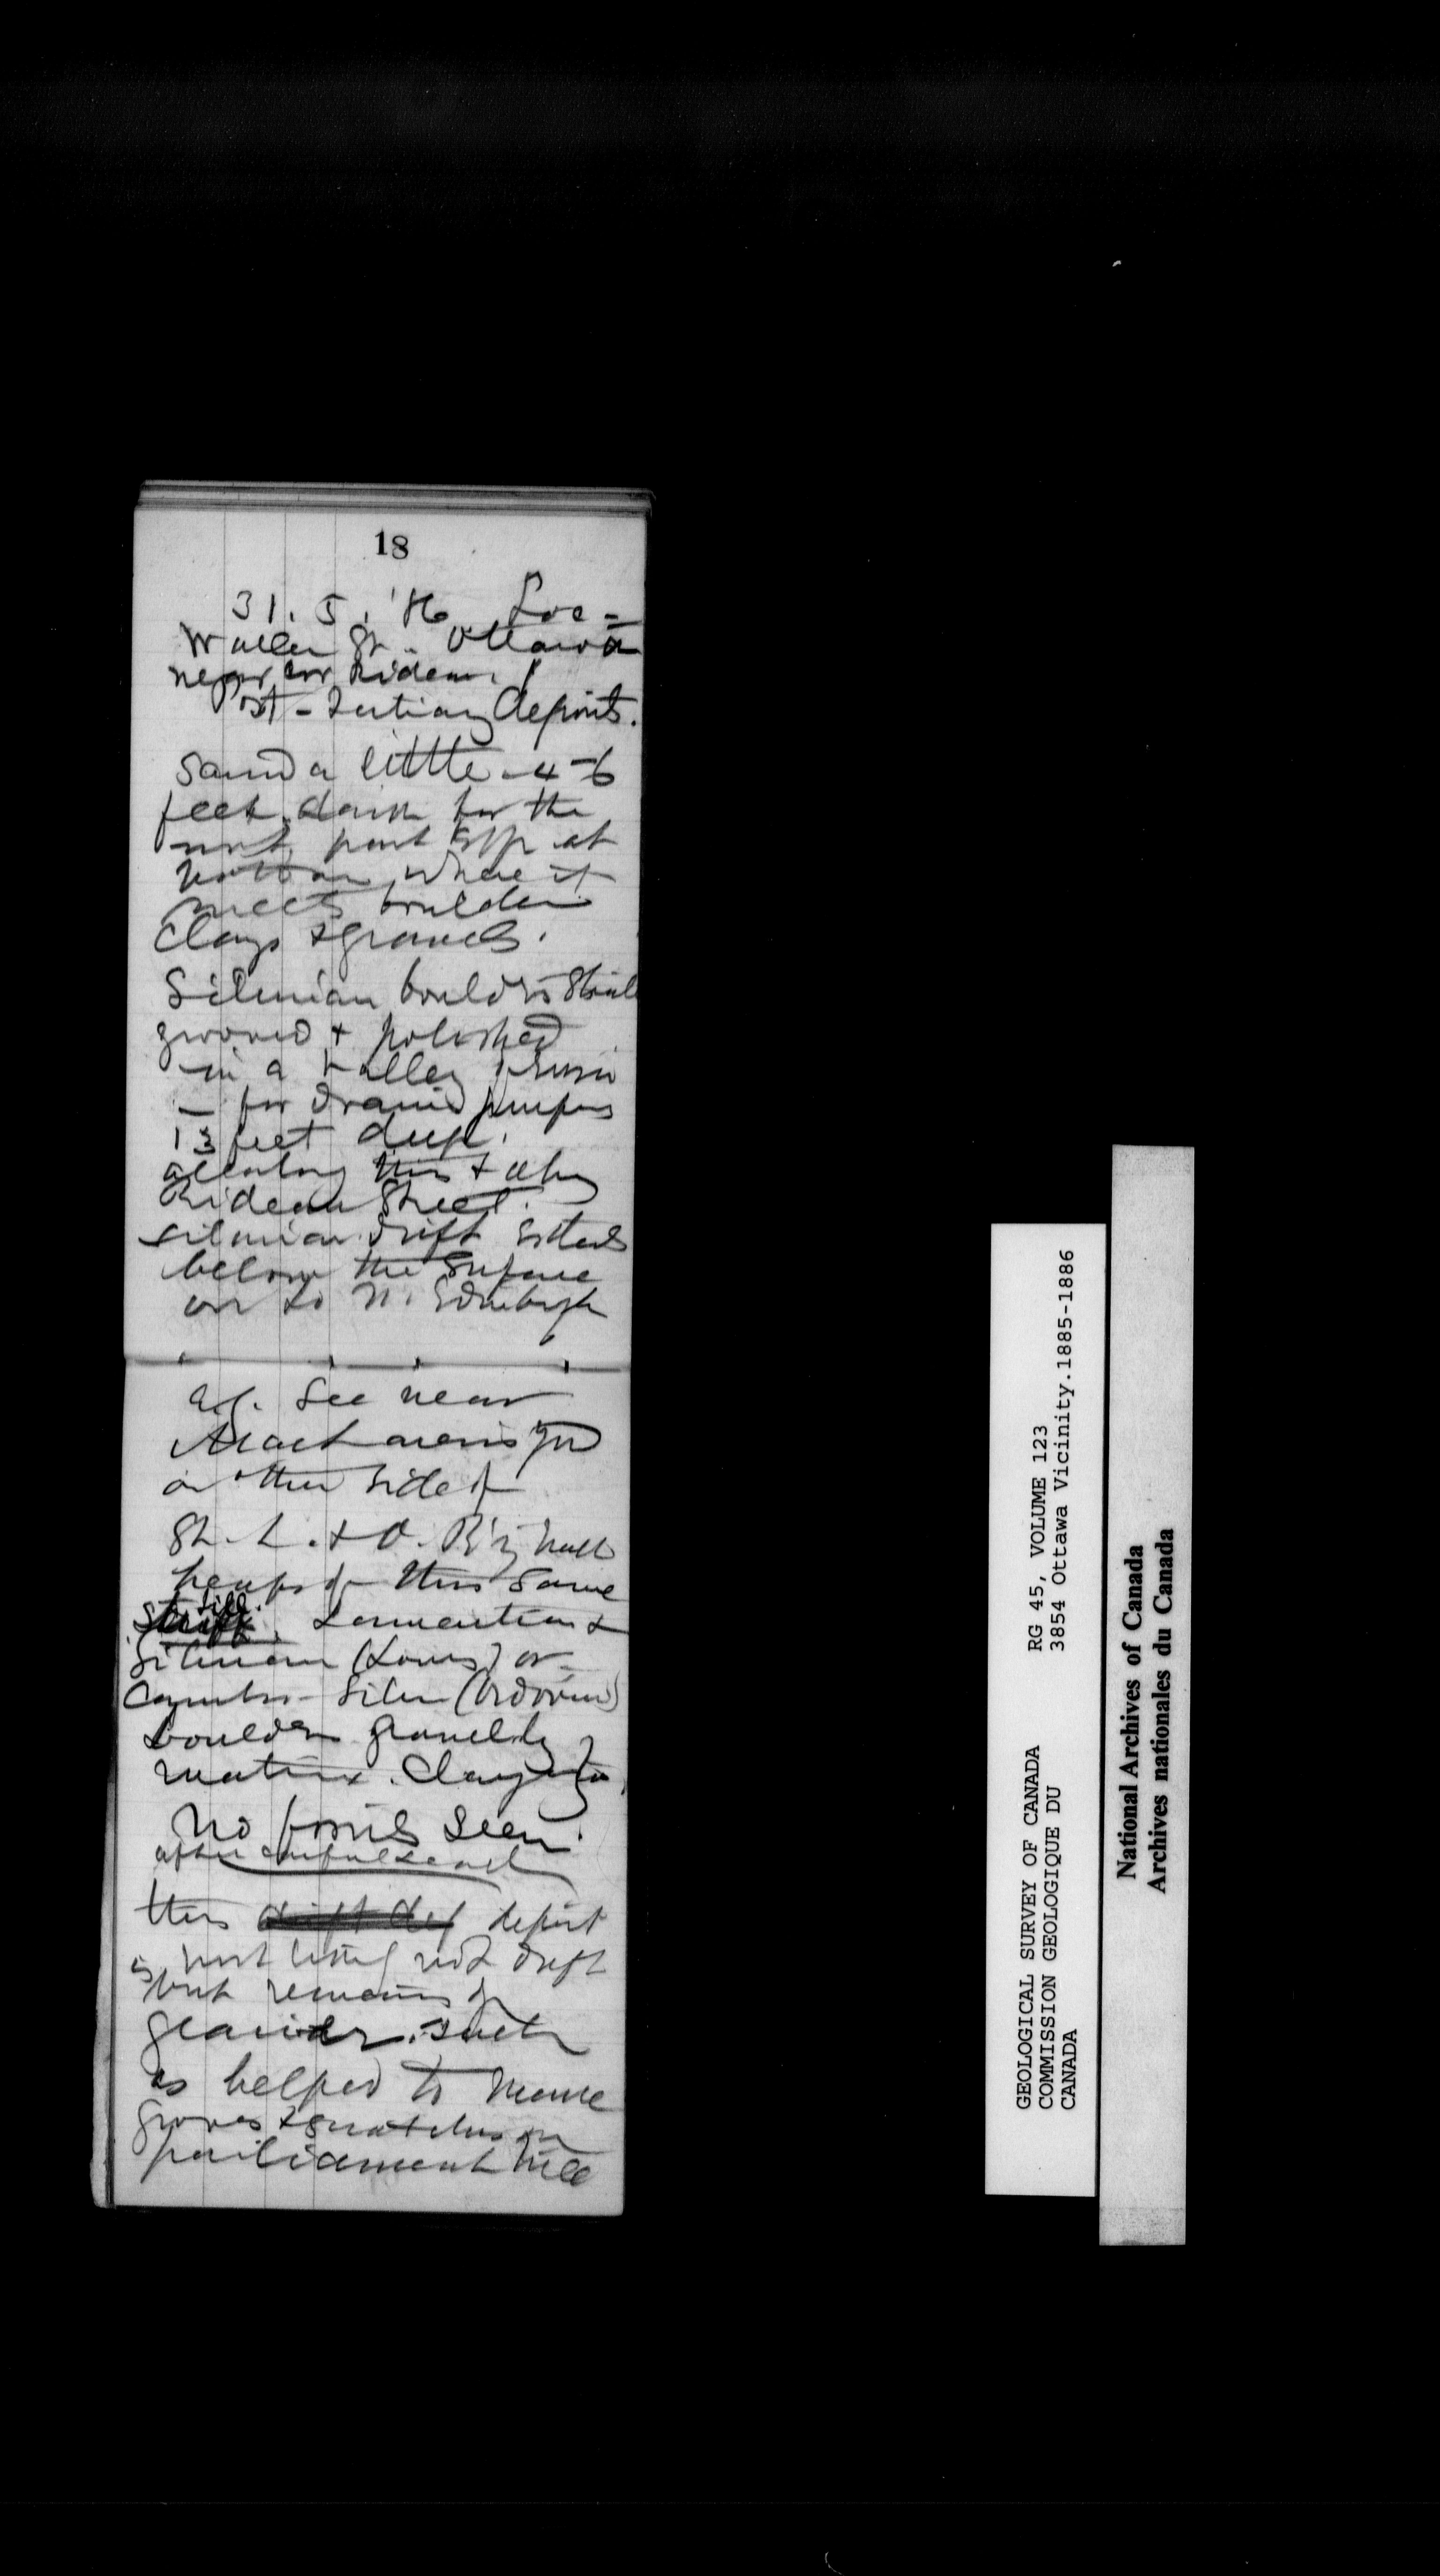 18
31. 5. '86 Loc =
Waller St. Ottawa
near cor Rideau.
Post-Tertiary deposits.
Sand a little - 4-6
feet. down for the
most part at
bottom where it
meets boulder
Clays & gravels.
Silurian boulders
grooved & polished
in a valley
- for drain purposes
13 feet deep.
all along this & along
Rideau Street.
silurian drift
below the surface
on to N. Edinburgh
e.g. See near
on other side of
St. L. & O. R'y
heaps of this same
till. Laurentian &
Silurian (Lower) or
Cambro-Silur (Ordovician)
boulders gravelly
matrix. Clay
No fossils seen
after careful search
this drift dep deposit
is not drift
but remains of
glacier such
as helped to
grooves & scratches on
parliament hill
GEOLOGICAL SURVEY OF CANADA
COMMISSION GEOLOGIQUE DU
CANADA
RG 45, VOLUME 123
3854 Ottawa Vicinity.1885-1886
National Archives of Canada
Archives nationales du Canada